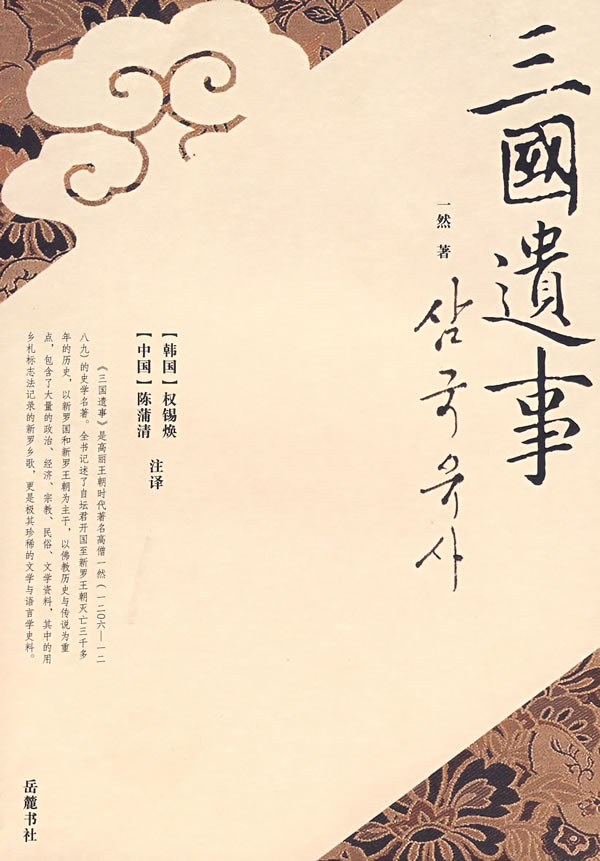 三國遺事
一然 著
삼국유사
【韩国】权锡焕
【中国】陈蒲清
注译
《三国遗事》是高丽王朝时代著名高僧一然（一二〇六—一二
八九）的史学名著。全书记述了自坛君开国至新罗王朝灭亡三千多
年的历史，以新罗国和新罗王朝为主干，以佛教历史与传说为重
点，包含了大量的政治、经济、宗教、民俗、文学资料，其中的用
乡札标志法记录的新罗乡歌，更是极其珍稀的文学与语言学史料。
岳麓书社